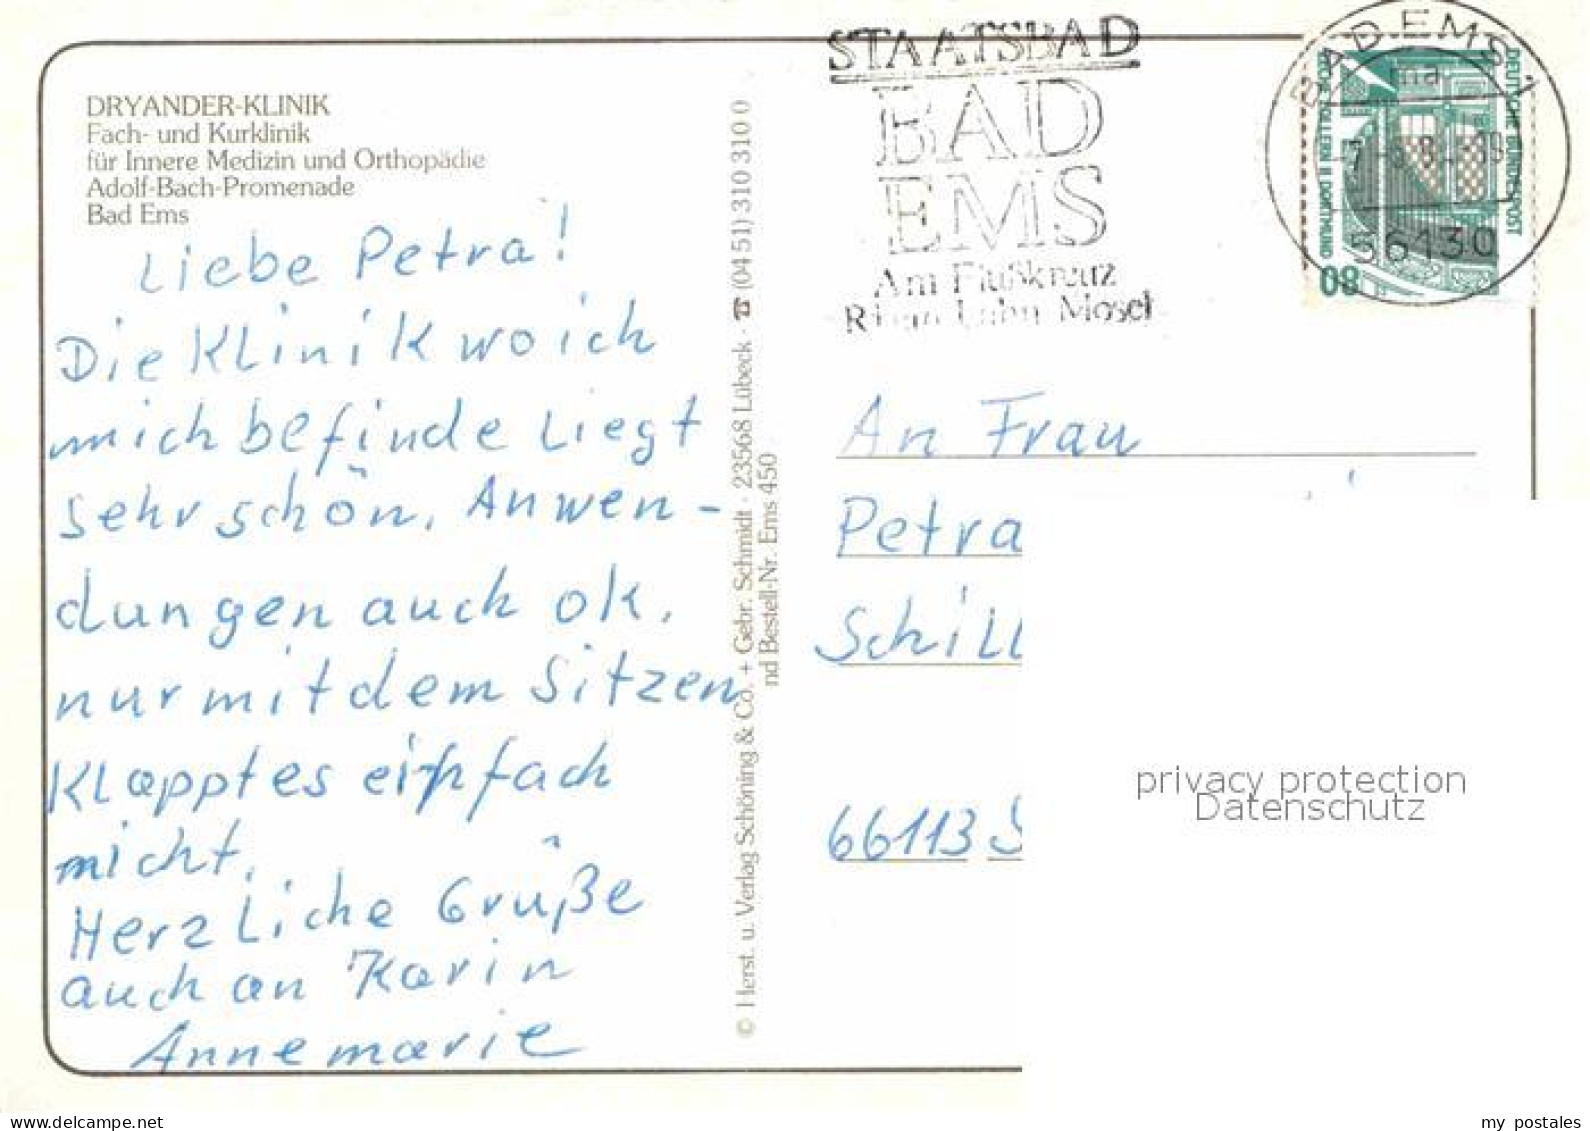 DRYANDER-KLINIK
Fach- und Kurklinik
für Innere Medizin und Orthopädie
Adolf-Bach-Promenade
Bad Ems
Liebe Petra!
Die Klinik wo ich
mich befinde liegt
sehr schön. Anwen-
dungen auch ok,
nur mit dem Sitzen
Klappt es einfach
nicht.
Herzliche Grüße
auch an Karin
Annemarie
© Herst. u. Verlag Schöning & Co. + Gebr. Schmidt · 23568 Lübeck · ☎ (04 51) 310 310 0
nd Bestell-Nr. Ems 450
STAATSBAD
BAD
EMS
Am Flußkreuz
Rhein Lahn Mosel
BAD EMS 1
ma
56130
DEUTSCHE BUNDESPOST
ZECHE ZOLLERN II DORTMUND
80
An Frau
Petra
Schill
66113 S
privacy protection
Datenschutz
my_postales
www.delcampe.net